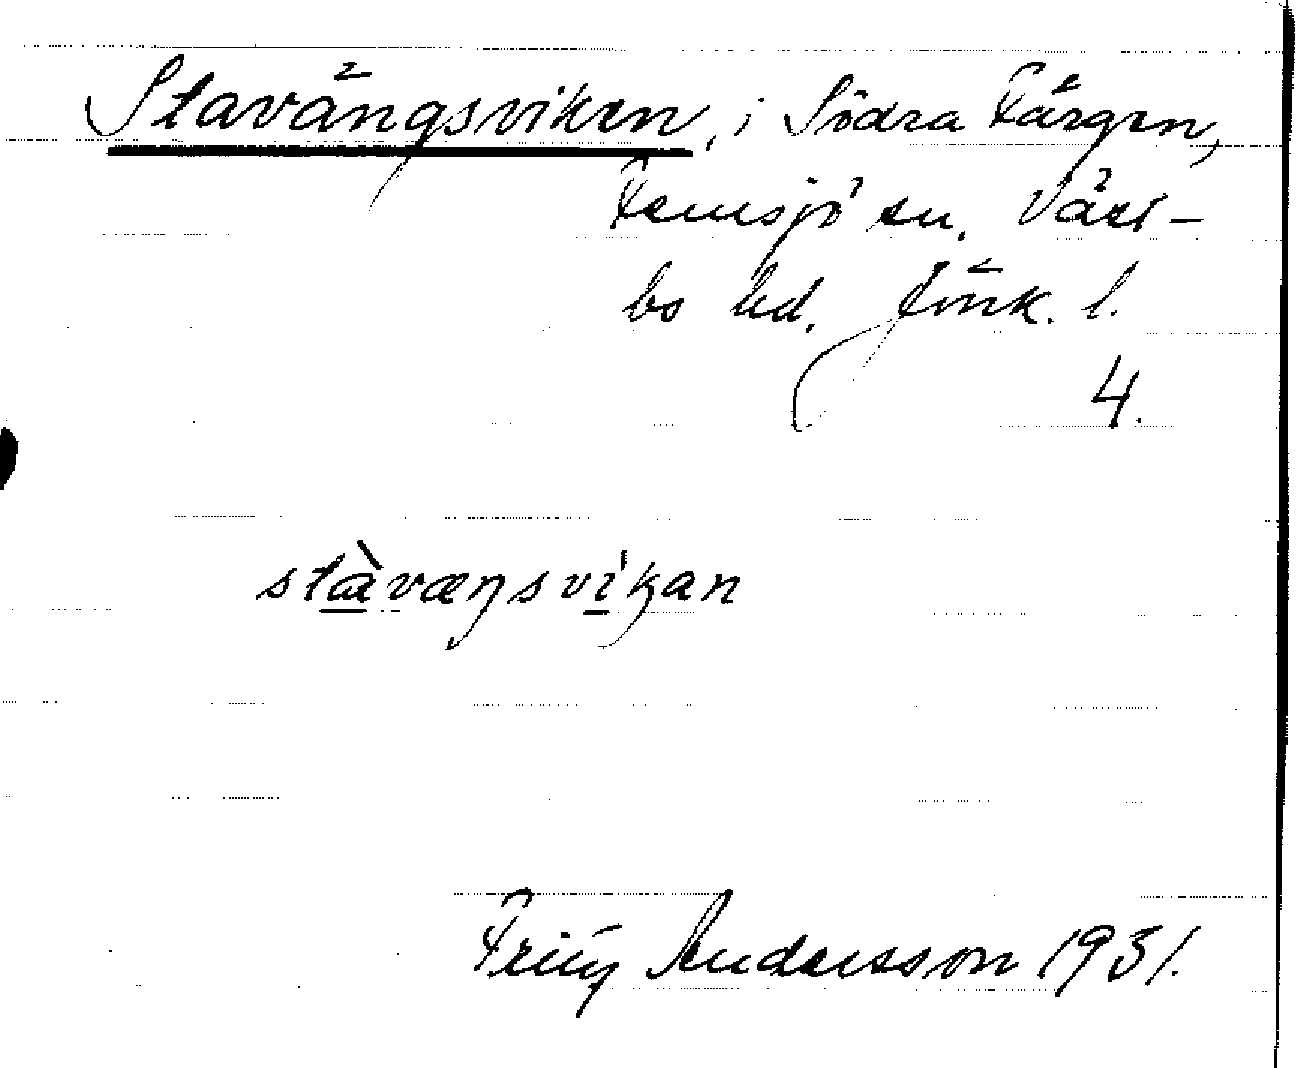 Stavängsviken, i Södra Färgen,
Femsjö sn. Väst-
bo hd. Jönk. l.
4.
stàvæŋsvíkan
Andersson 1931.